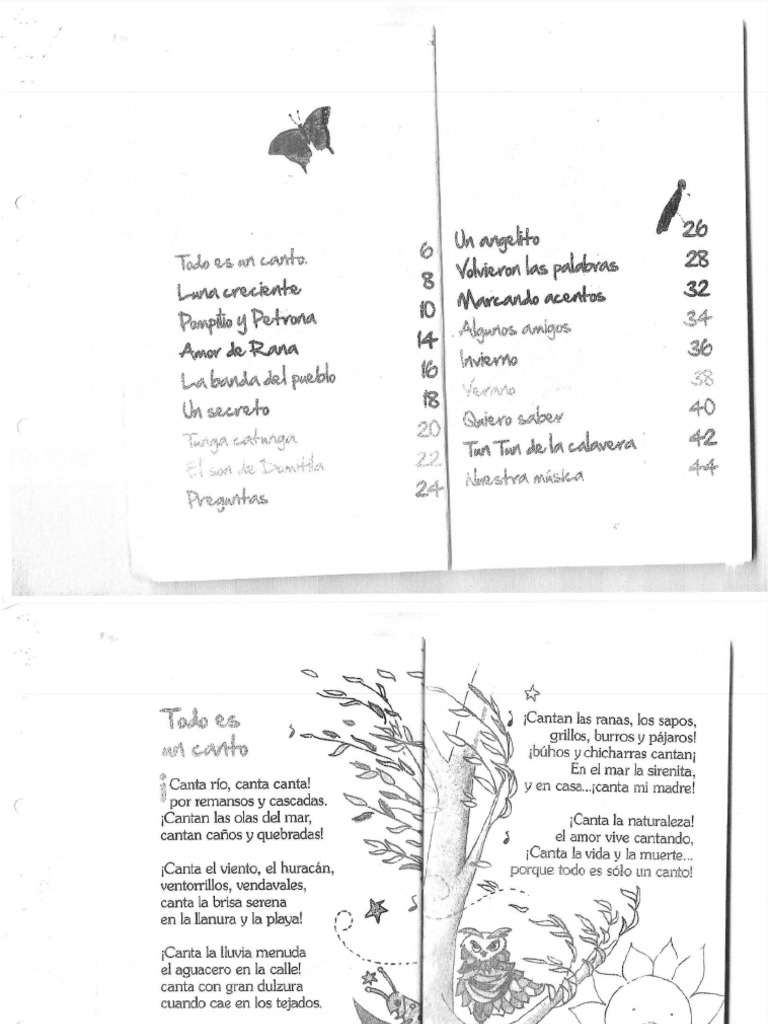 Todo es un canto. 6
Luna creciente 8
Pompilio y Petrona 10
Amor de Rana 14
La banda del pueblo 16
Un secreto 18
Tunga catunga 20
El son de Domitila 22
Preguntas 24
Un angelito 26
Volvieron las palabras 28
Marcando acentos 32
Algunos amigos 34
Invierno 36
Verano 38
Quiero saber 40
Tun Tun de la calavera 42
Nuestra música 44
Todo es
un canto
¡Canta río, canta canta!
por remansos y cascadas.
¡Cantan las olas del mar,
cantan caños y quebradas!
¡Canta el viento, el huracán,
ventorrillos, vendavales,
canta la brisa serena
en la llanura y la playa!
¡Canta la lluvia menuda
el aguacero en la calle!
canta con gran dulzura
cuando cae en los tejados.
¡Cantan las ranas, los sapos,
grillos, burros y pájaros!
¡búhos y chicharras cantan¡
En el mar la sirenita,
y en casa...¡canta mi madre!
¡Canta la naturaleza!
el amor vive cantando,
¡Canta la vida y la muerte...
porque todo es sólo un canto!